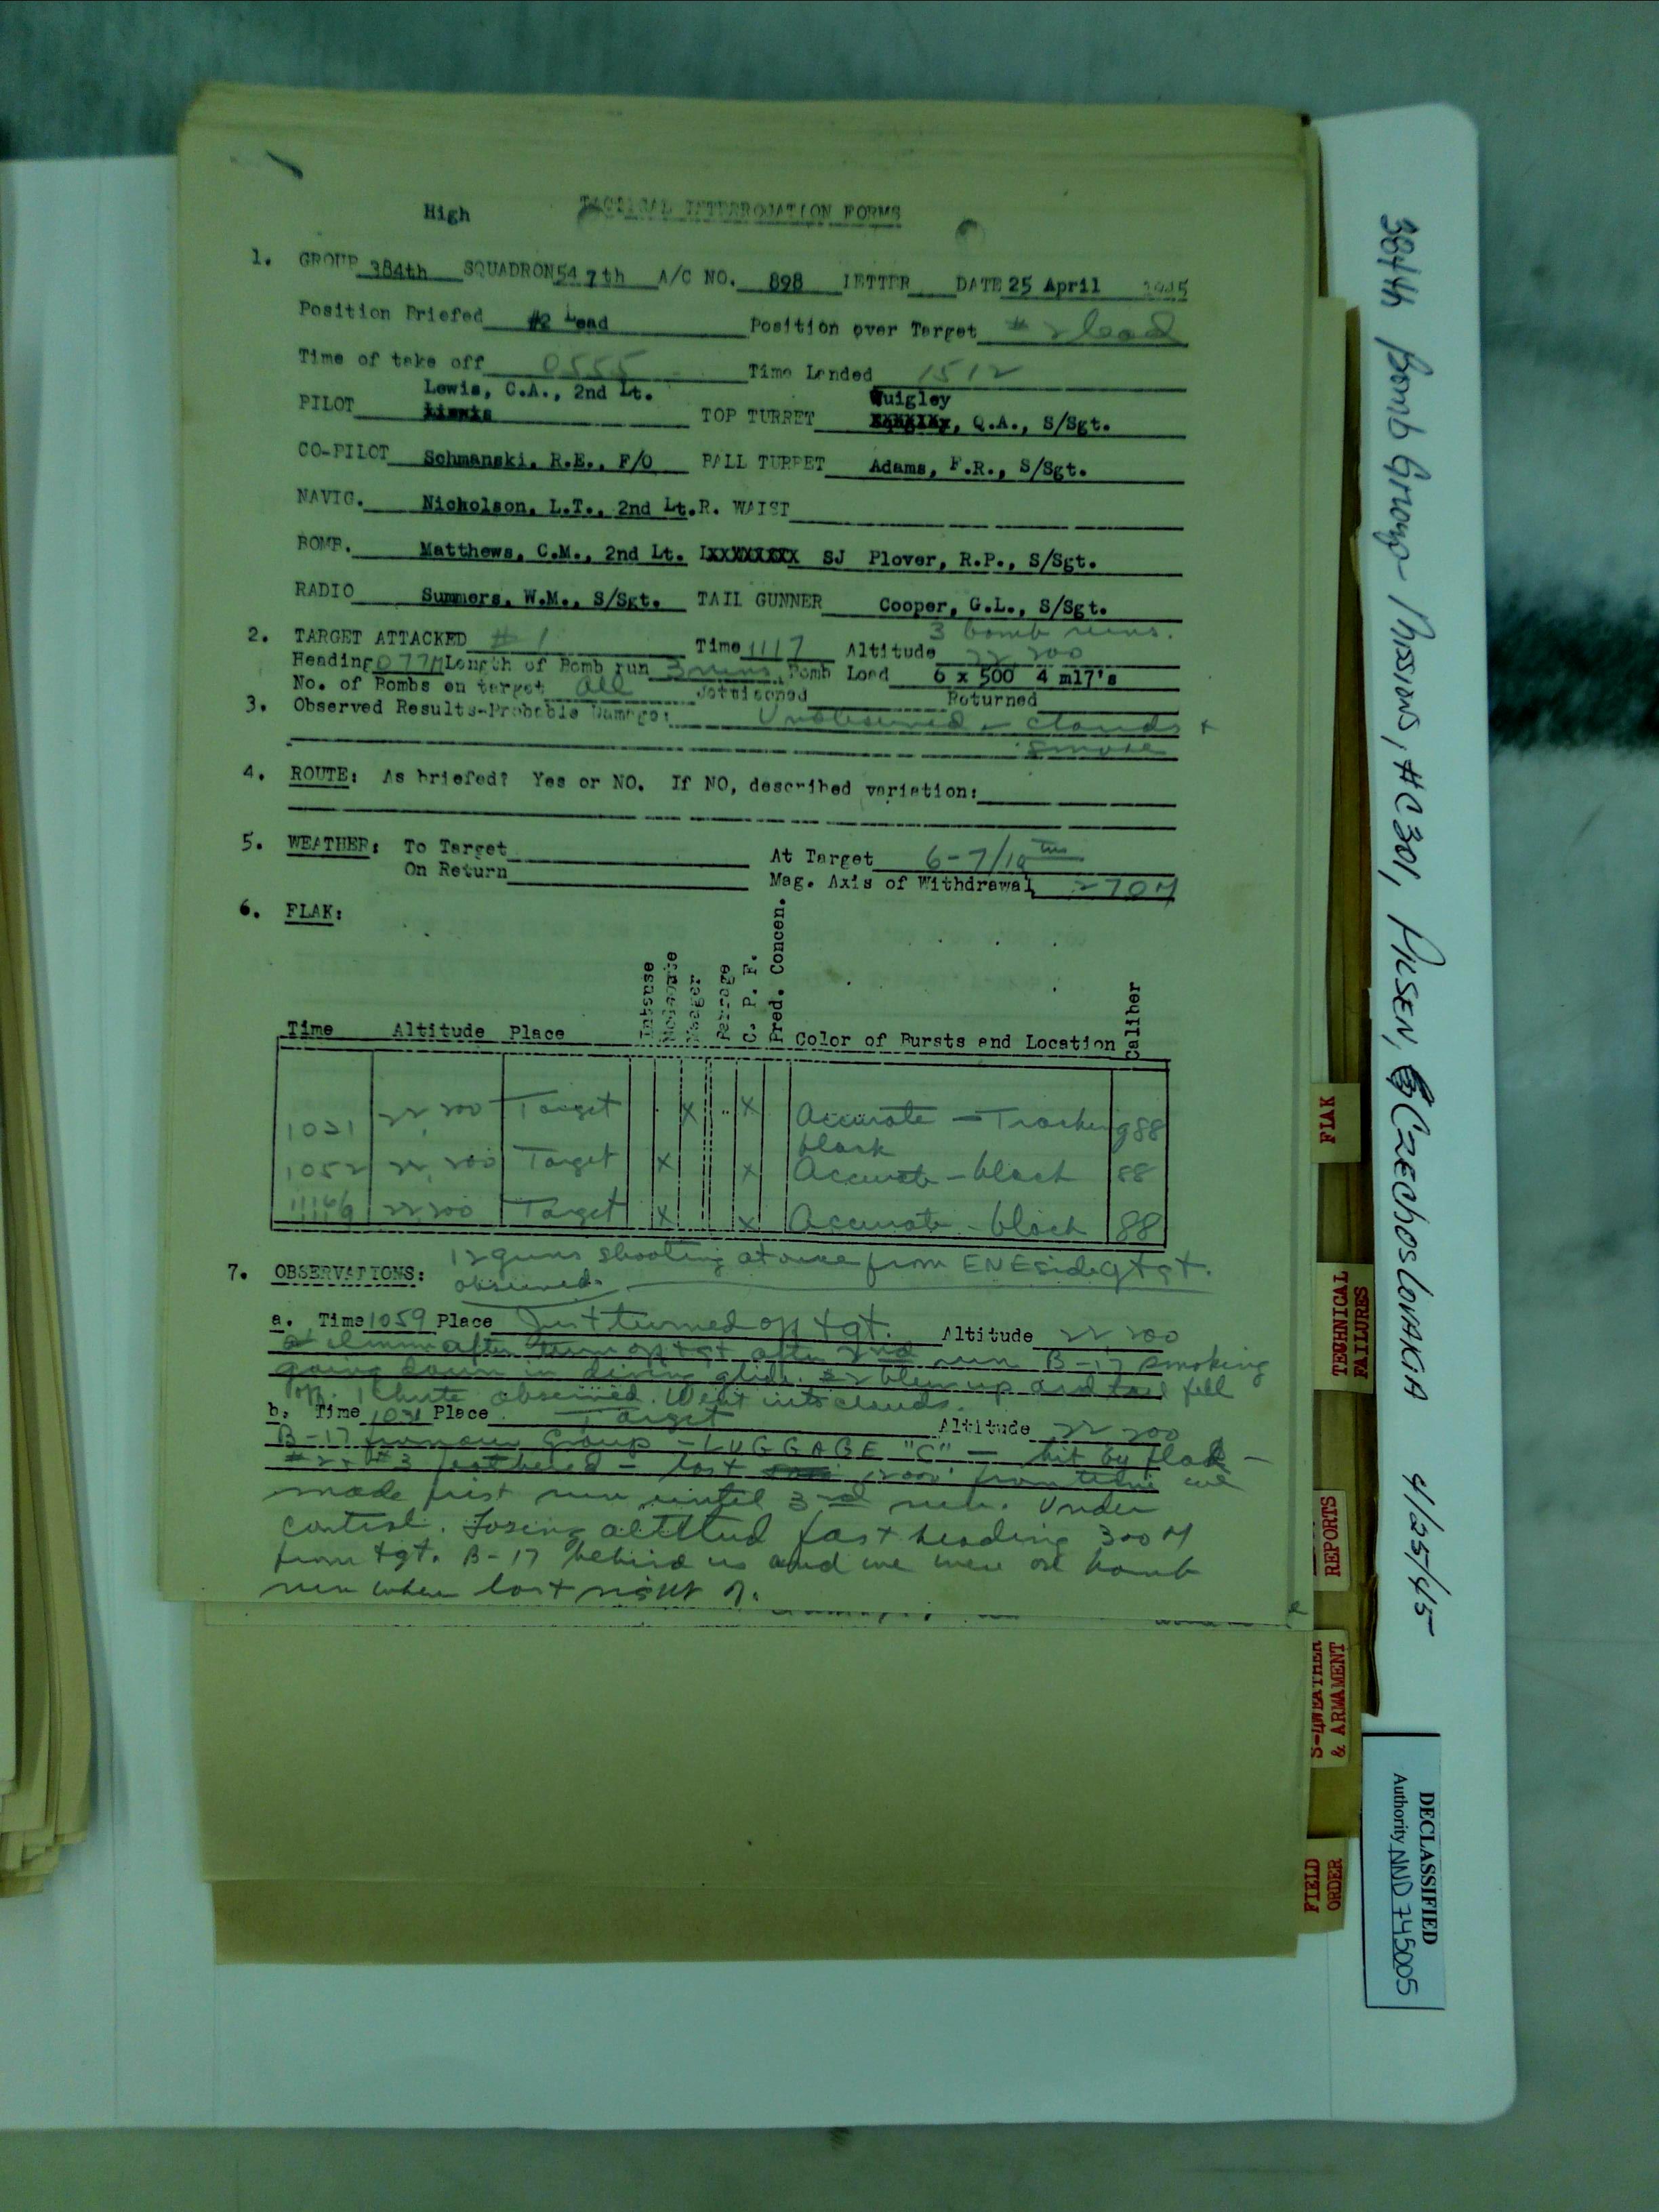 High TACTICAL INTERROGATION FORMS
1. GROUP 384th SQUADRON 547th A/C NO. 898 LETTER DATE 25 April 1945
Position Briefed #2 Lead Position over Target #2 lead
Time of take off 0555 Time Landed 1512
Lewis, C.A., 2nd Lt. Quigley
PILOT TOP TURRET , Q.A., S/Sgt.
CO-PILOT Schmanski, R.E., F/O BALL TURRET Adams, F.R., S/Sgt.
NAVIG. Nicholson, L.T., 2nd Lt. R. WAIST
BOMB. Matthews, C.M., 2nd Lt. LXXXXXXXX SJ Plover, R.P., S/Sgt.
RADIO Summers, W.M., S/Sgt. TAIL GUNNER Cooper, G.L., S/Sgt.
3 bomb runs.
2. TARGET ATTACKED #1 Time 1117 Altitude 22,200
Heading 077M Length of Bomb run 3 runs Bomb Load 6 x 500 4 m17's
No. of Bombs on target all Jettisoned Returned
3. Observed Results-Probable Damage: Unobserved - clouds +
smoke
4. ROUTE: As briefed? Yes or NO. If NO, described variation:
5. WEATHER: To Target At Target 6-7/10 ths
On Return Mag. Axis of Withdrawal 270M
6. FLAK:
Time Altitude Place Intense Moderate Meager Barrage C. P. F. Pred. Concen. Color of Bursts and Location Caliber
1031 22,200 Target X X Accurate - Tracking 88
black
1052 22,200 Target X X Accurate - black 88
1116/9 22,200 Target X X Accurate - black 88
12 guns shooting at once from ENE side of tgt.
7. OBSERVATIONS: observed.
a. Time 1059 Place Just turned off tgt. Altitude 22 200
1 min after turn off tgt after 2nd run B-17 smoking
going down in diving glide. #2 blew up and tail fell
off. 1 chute observed. Went into clouds.
b. Time 1031 Place Target Altitude 22 200
B-17 from our Group - LUGGAGE "C" - hit by flak -
#2 + #3 feathered - lost 1200' from time we
made first run until 3rd run. Under
control. Losing altitud fast heading 300 M
from tgt. B-17 behind us and we were on bomb
run when lost sight of.
384th Bomb Group Missions, #C301, PILSEN, CZECHOSLOVAKIA 4/25/45
FLAK
TECHNICAL
FAILURES
REPORTS
S-4WEATHER
& ARMAMENT
FIELD
ORDER
DECLASSIFIED
Authority NND 745005